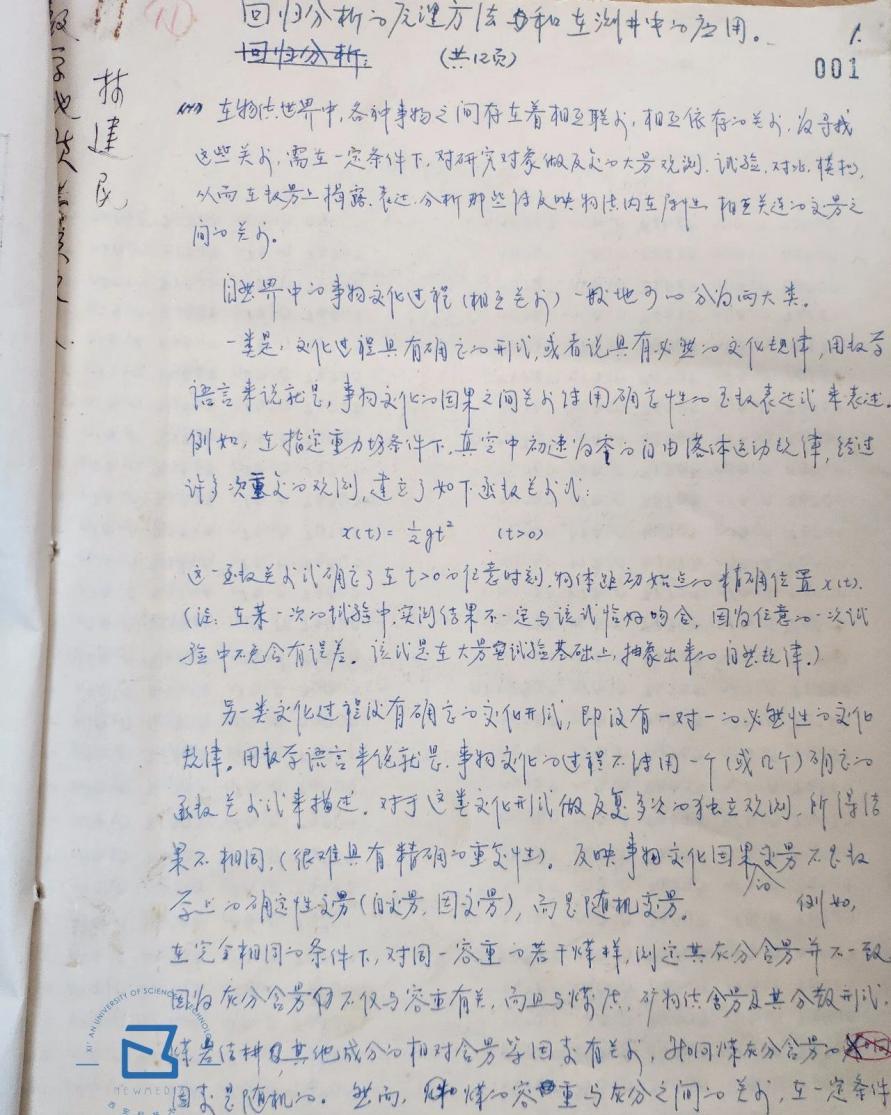 回归分析的原理方法和在测井中的应用。
回归分析:
(共12页)
1.
001
林建民
在物质世界中,各种事物之间存在着相互联系,相互依存的关系,为寻找
这些关系,需在一定条件下,对研究对象做反复的大量观测、试验、对比、模拟,
从而在数量上揭露、表达、分析那些能反映物质内在属性 相互关连的变量之
间的关系。
自然界中的事物变化过程(相互关系)一般地可以分为两大类。
一类是,变化过程具有确定的形式,或者说具有必然的变化规律,用数学
语言来说就是,事物变化的因果之间关系能用确定性的函数表达式来表述。
例如,在指定重力场条件下,真空中初速为零的自由落体运动规律,经过
许多次重复的观测,建立了如下函数关系式:
x(t) = ½gt² (t>0)
这一函数关系式确定了在t>0的任意时刻,物体距初始点的精确位置x(t).
(注:在某一次的试验中,实测结果不一定与该式恰好吻合,因为任意的一次试
验中不免含有误差。该式是在大量试验基础上,抽象出来的自然规律。)
另一类变化过程没有确定的变化形式,即没有一对一的必然性的变化
规律。用数学语言来说就是,事物变化的过程不能用一个(或几个)确定的
函数关系式来描述。对于这类变化形式做反复多次的独立观测,所得结
果不相同,(很难具有精确的重复性)。反映事物变化因果的变量不是数
学上的确定性变量(自变量,因变量),而是随机变量。 例如,
在完全相同的条件下,对同一容重的若干煤样,测定其灰分含量并不一致
因为灰分含量不仅与容重有关,而且与煤质,矿物质含量及其分散形式,
煤岩结构及其他成分的相对含量等因素有关系,影响煤灰分含量的
因素是随机的。然而,煤的容重与灰分之间的关系,在一定条件
XI'AN UNIVERSITY OF SCIENCE
NEWMED